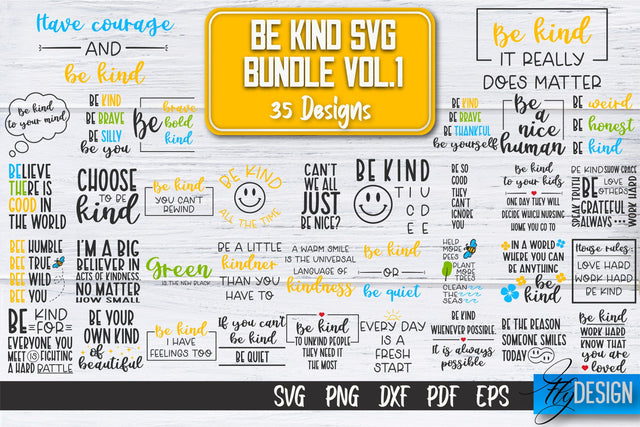 Have courage
AND
be kind
BE KIND SVG
BUNDLE VOL.1
35 Designs
Be kind
IT REALLY
DOES MATTER
Be kind
to your mind
BE KIND
BE BRAVE
BE SILLY
be you
Be
brave
bold
kind
BE KIND
BE BRAVE
BE THANKFUL
be yourself
Be
a
nice
human
BE weird
BE honest
BE kind
BELIEVE
THERE IS
GOOD IN
THE WORLD
CHOOSE
TO BE
kind
Be kind
YOU CAN'T
REWIND
BE KIND
ALL THE TIME
CAN'T
WE ALL
JUST
BE NICE?
BE KIND
TIU
CD
EE
BE SO
GOOD
THEY
CAN'T
IGNORE
YOU
Be kind
to your kids
ONE DAY THEY WILL
DECIDE WHICH NURSING
HOME YOU GO TO
BE KIND SHOW GRACE
SPEAK TRUTH
BE LOVE
OTHERS
GRATEFUL
ALWAYS
WORK HARD
BEE HUMBLE
BEE TRUE
BEE WILD
BEE YOU
I'M A BIG
BELIEVER IN
ACTS OF KINDNESS,
NO MATTER
HOW SMALL
Green
IS THE NEW BLACK
BE A LITTLE
kindner
THAN YOU
HAVE TO
A WARM SMILE
IS THE UNIVERSAL
LANGUAGE OF
kindness
Be kind
OR
be quiet
HELP
MORE
BEES
PLANT
MORE
TREES
CLEAN
THE
SEAS
IN A WORLD
WHERE YOU CAN
BE ANYTHING
be
kind
House rules:
LOVE HARD
WORK HARD
BE KIND
BE KIND
FOR
EVERYONE YOU
MEET IS FIGHTING
A HARD BATTLE
BE YOUR
OWN KIND
OF
beautiful
Be kind
I HAVE
FEELINGS TOO
If you can't
be kind
BE QUIET
Be kind
TO UNKIND PEOPLE
THEY NEED IT
THE MOST
EVERY DAY
IS A
FRESH
START
BE KIND
WHENEVER POSSIBLE.
It is always
possible
BE THE REASON
SOMEONE SMILES
TODAY
Be kind
WORK HARD
KNOW THAT
you are
loved
SVG PNG DXF PDF EPS
Fly DESIGN